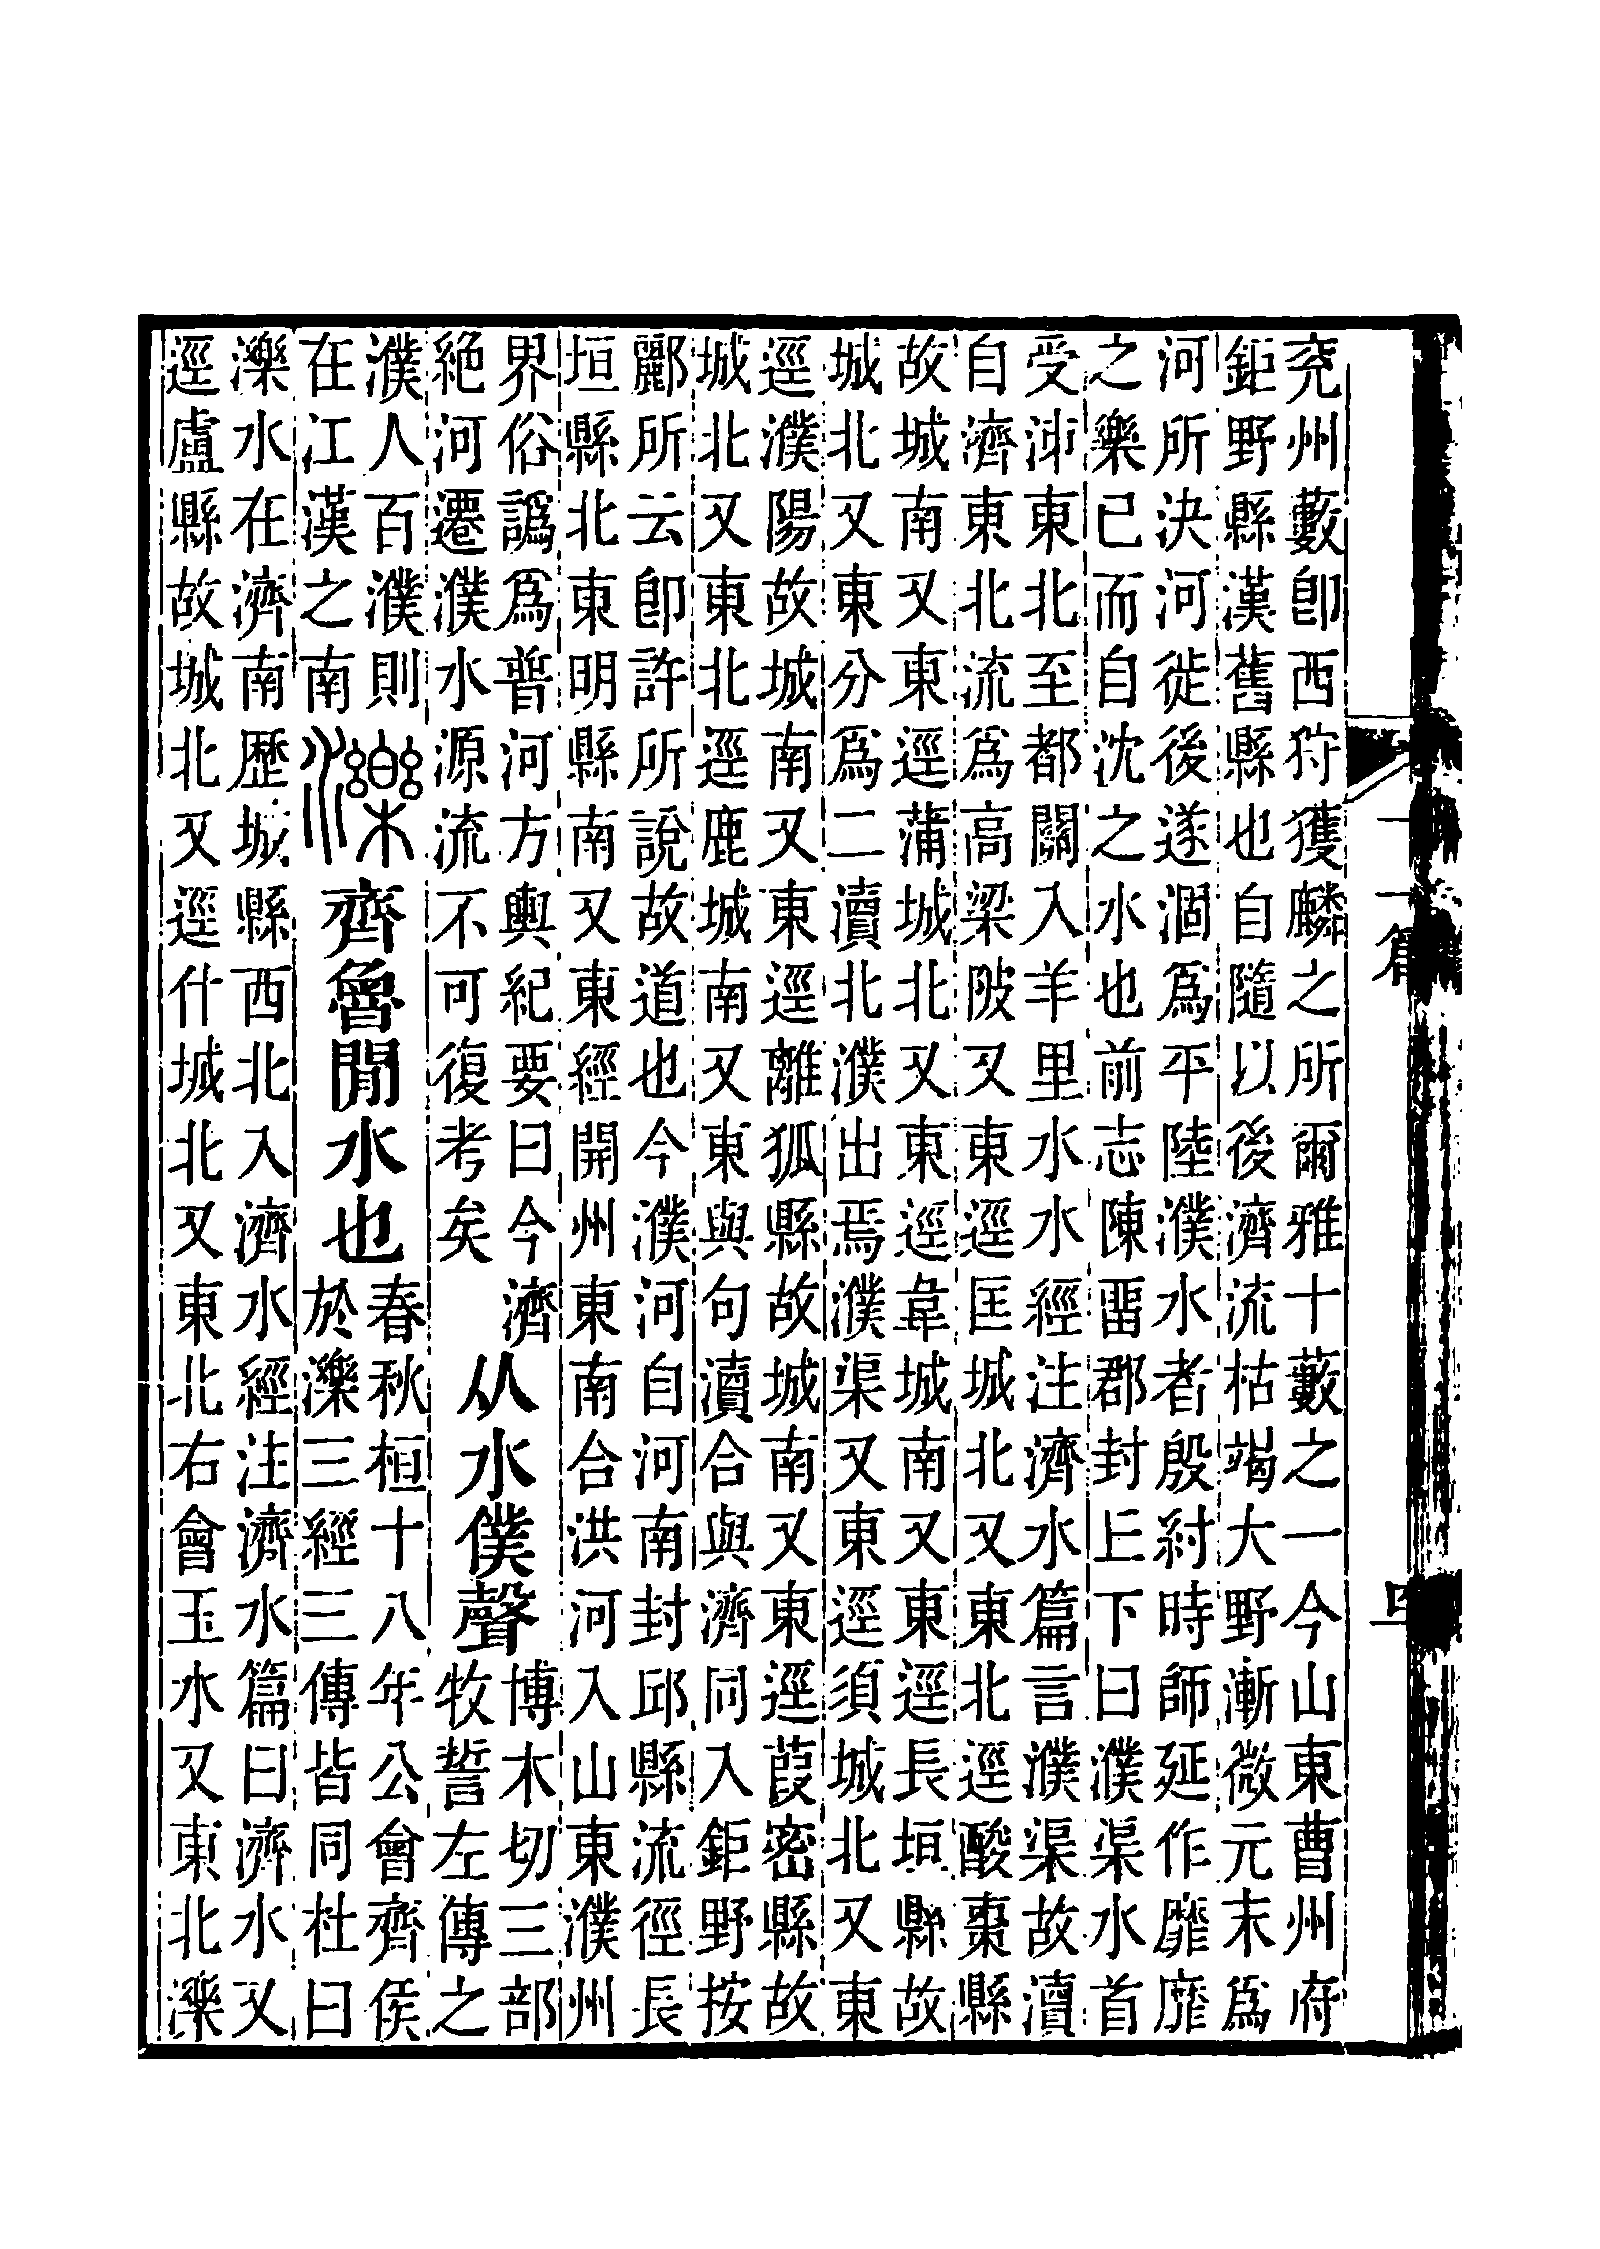 兖州藪卽西狩獲麟之所爾雅十藪之一今山東曹州府
鉅野縣漢舊縣也自隨以後濟流枯竭大野漸微元末爲
河所決河徙後遂涸爲平陸濮水者殷紂時師延作靡靡
之樂已而自沈之水也前志陳畱郡封丘下曰濮渠水首
受泲東北至都關入羊里水水經注濟水篇言濮渠故瀆
自濟東北流爲高梁陂又東逕匡城北又東北逕酸棗縣
故城南又東逕蒲城北又東逕韋城南又東逕長垣縣故
城北又東分爲二瀆北濮出焉濮渠又東逕須城北又東
逕濮陽故城南又東逕離狐縣故城南又東逕葭密縣故
城北又東北逕鹿城南又東與句瀆合與濟同入鉅野按
酈所云卽許所說故道也今濮河自河南封邱縣流徑長
垣縣北東明縣南又東經開州東南合洪河入山東濮州
界俗譌爲普河方輿紀要曰今濟
絕河遷濮水源流不可復考矣
从水僕聲
博木切三部
牧誓左傳之
濮人百濮則
在江漢之南
濼
齊魯閒水也
春秋桓十八年公會齊侯
於濼三經三傳皆同杜曰
濼水在濟南歷城縣西北入濟水經注濟水篇曰濟水又
逕盧縣故城北又逕什城北又東北右會玉水又東北濼
十一篇